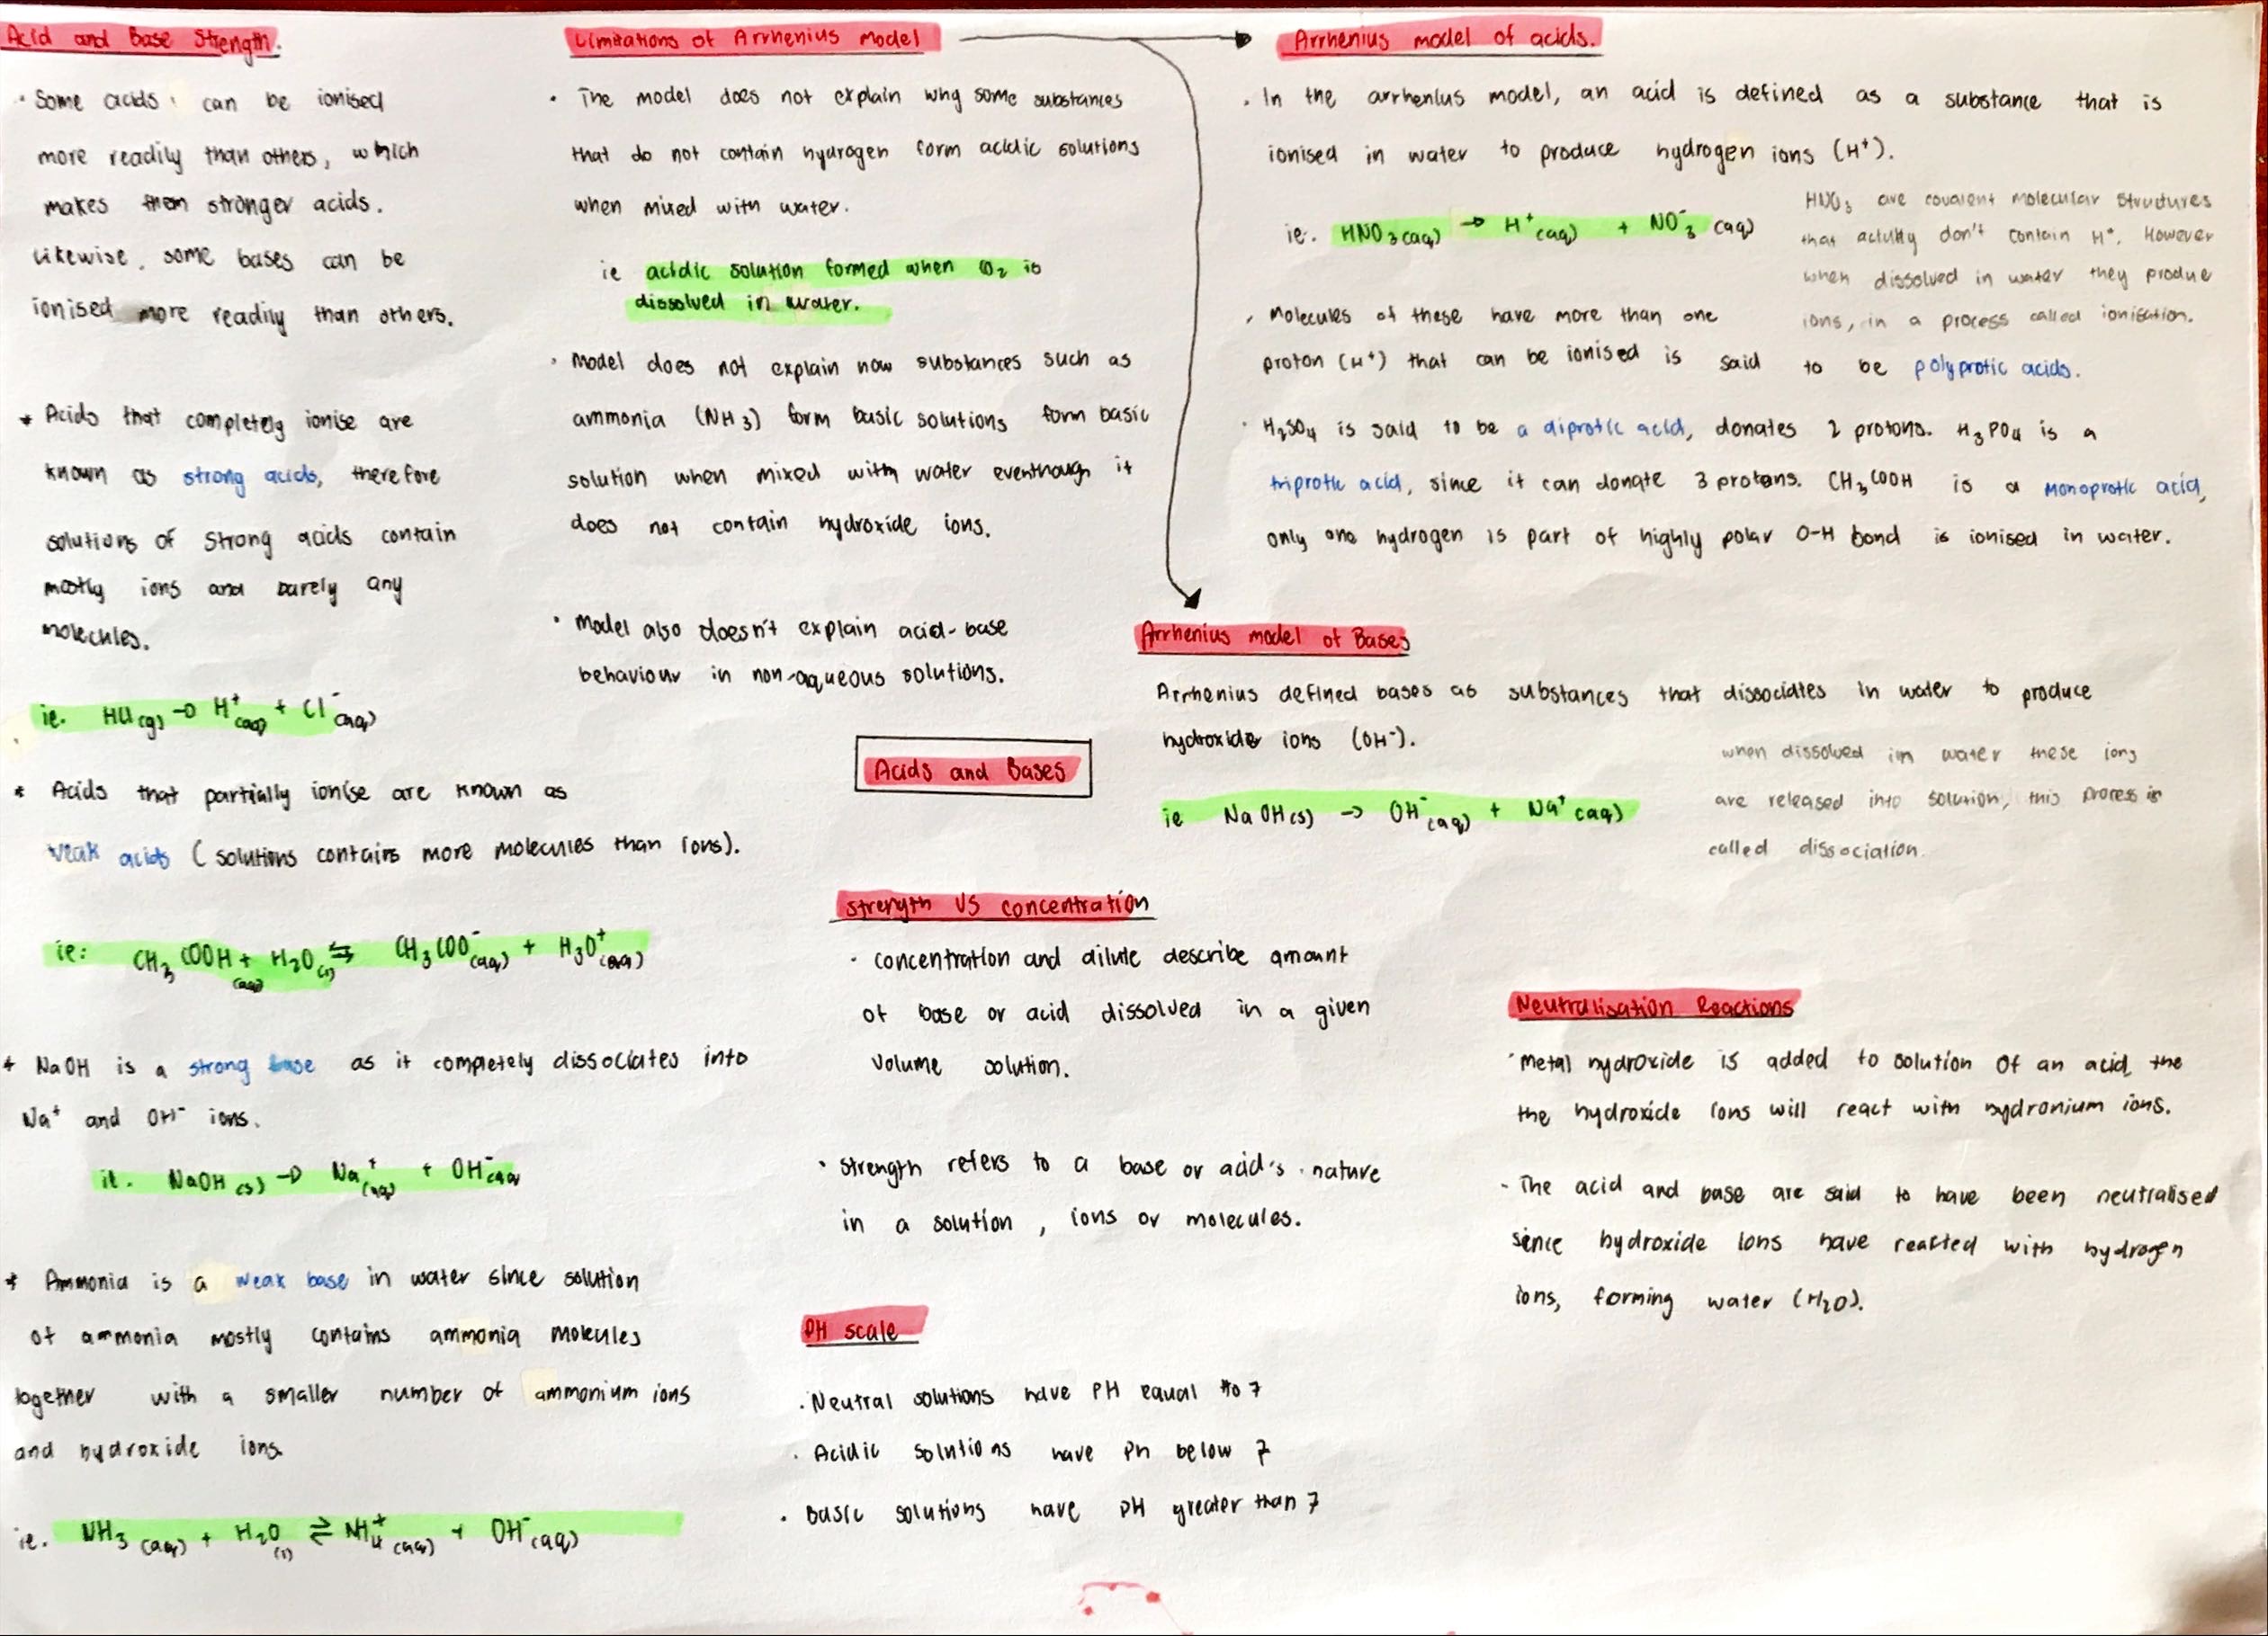 Acid and Base Strength.
· Some acids can be ionised
more readily than others, which
makes them stronger acids.
Likewise, some bases can be
ionised more readily than others.
* Acids that completely ionise are
known as strong acids, therefore
solutions of strong acids contain
mostly ions and barely any
molecules.
ie. HCl(g) → H⁺(aq) + Cl⁻(aq)
* Acids that partially ionise are known as
weak acids (solutions contains more molecules than ions).
ie: CH₃COOH(aq) + H₂O(l) ⇆ CH₃COO⁻(aq) + H₃O⁺(aq)
* NaOH is a strong base as it completely dissociates into
Na⁺ and OH⁻ ions.
ie. NaOH(s) → Na⁺(aq) + OH⁻(aq
* Ammonia is a weak base in water since solution
of ammonia mostly contains ammonia molecules
together with a smaller number of ammonium ions
and hydroxide ions.
ie. NH₃(aq) + H₂O(l) ⇌ NH₄⁺(aq) + OH⁻(aq)
Limitations of Arrhenius Model
· The model does not explain why some substances
that do not contain hydrogen form acidic solutions
when mixed with water.
ie acidic solution formed when CO₂ is
dissolved in water.
· Model does not explain how substances such as
ammonia (NH₃) form basic solutions form basic
solution when mixed with water eventhough it
does not contain hydroxide ions.
· Model also doesn't explain acid-base
behaviour in non-aqueous solutions.
Acids and Bases
Strength VS concentration
· concentration and dilute describe amount
of base or acid dissolved in a given
volume solution.
· Strength refers to a base or acid's nature
in a solution, ions or molecules.
PH scale
· Neutral solutions have PH equal to 7
· Acidic solutions have Ph below 7
· Basic solutions have PH greater than 7
Arrhenius model of acids.
· In the arrhenius model, an acid is defined as a substance that is
ionised in water to produce hydrogen ions (H⁺).
ie. HNO₃(aq) → H⁺(aq) + NO₃⁻(aq)
HNO₃ are covalent molecular structures
that actully don't contain H⁺. However
when dissolved in water they produe
ions, in a process called ionisation.
· Molecules of these have more than one
proton (H⁺) that can be ionised is said to be polyprotic acids.
· H₂SO₄ is said to be a diprotic acid, donates 2 protons. H₃PO₄ is a
triprotic acid, since it can donate 3 protons. CH₃COOH is a monoprotic acid,
only one hydrogen is part of highly polar O-H bond is ionised in water.
Arrhenius model of Bases
Arrhenius defined bases as substances that dissociates in water to produce
hydroxide ions (OH⁻).
ie NaOH(s) → OH⁻(aq) + Na⁺(aq)
when dissolved in water these ions
are released into solution, this process is
called dissociation.
Neutralisation Reactions
· Metal hydroxide is added to solution of an acid, the
the hydroxide ions will react with hydronium ions.
- The acid and base are said to have been neutralised
since hydroxide ions have reacted with hydrogen
ions, forming water (H₂O).